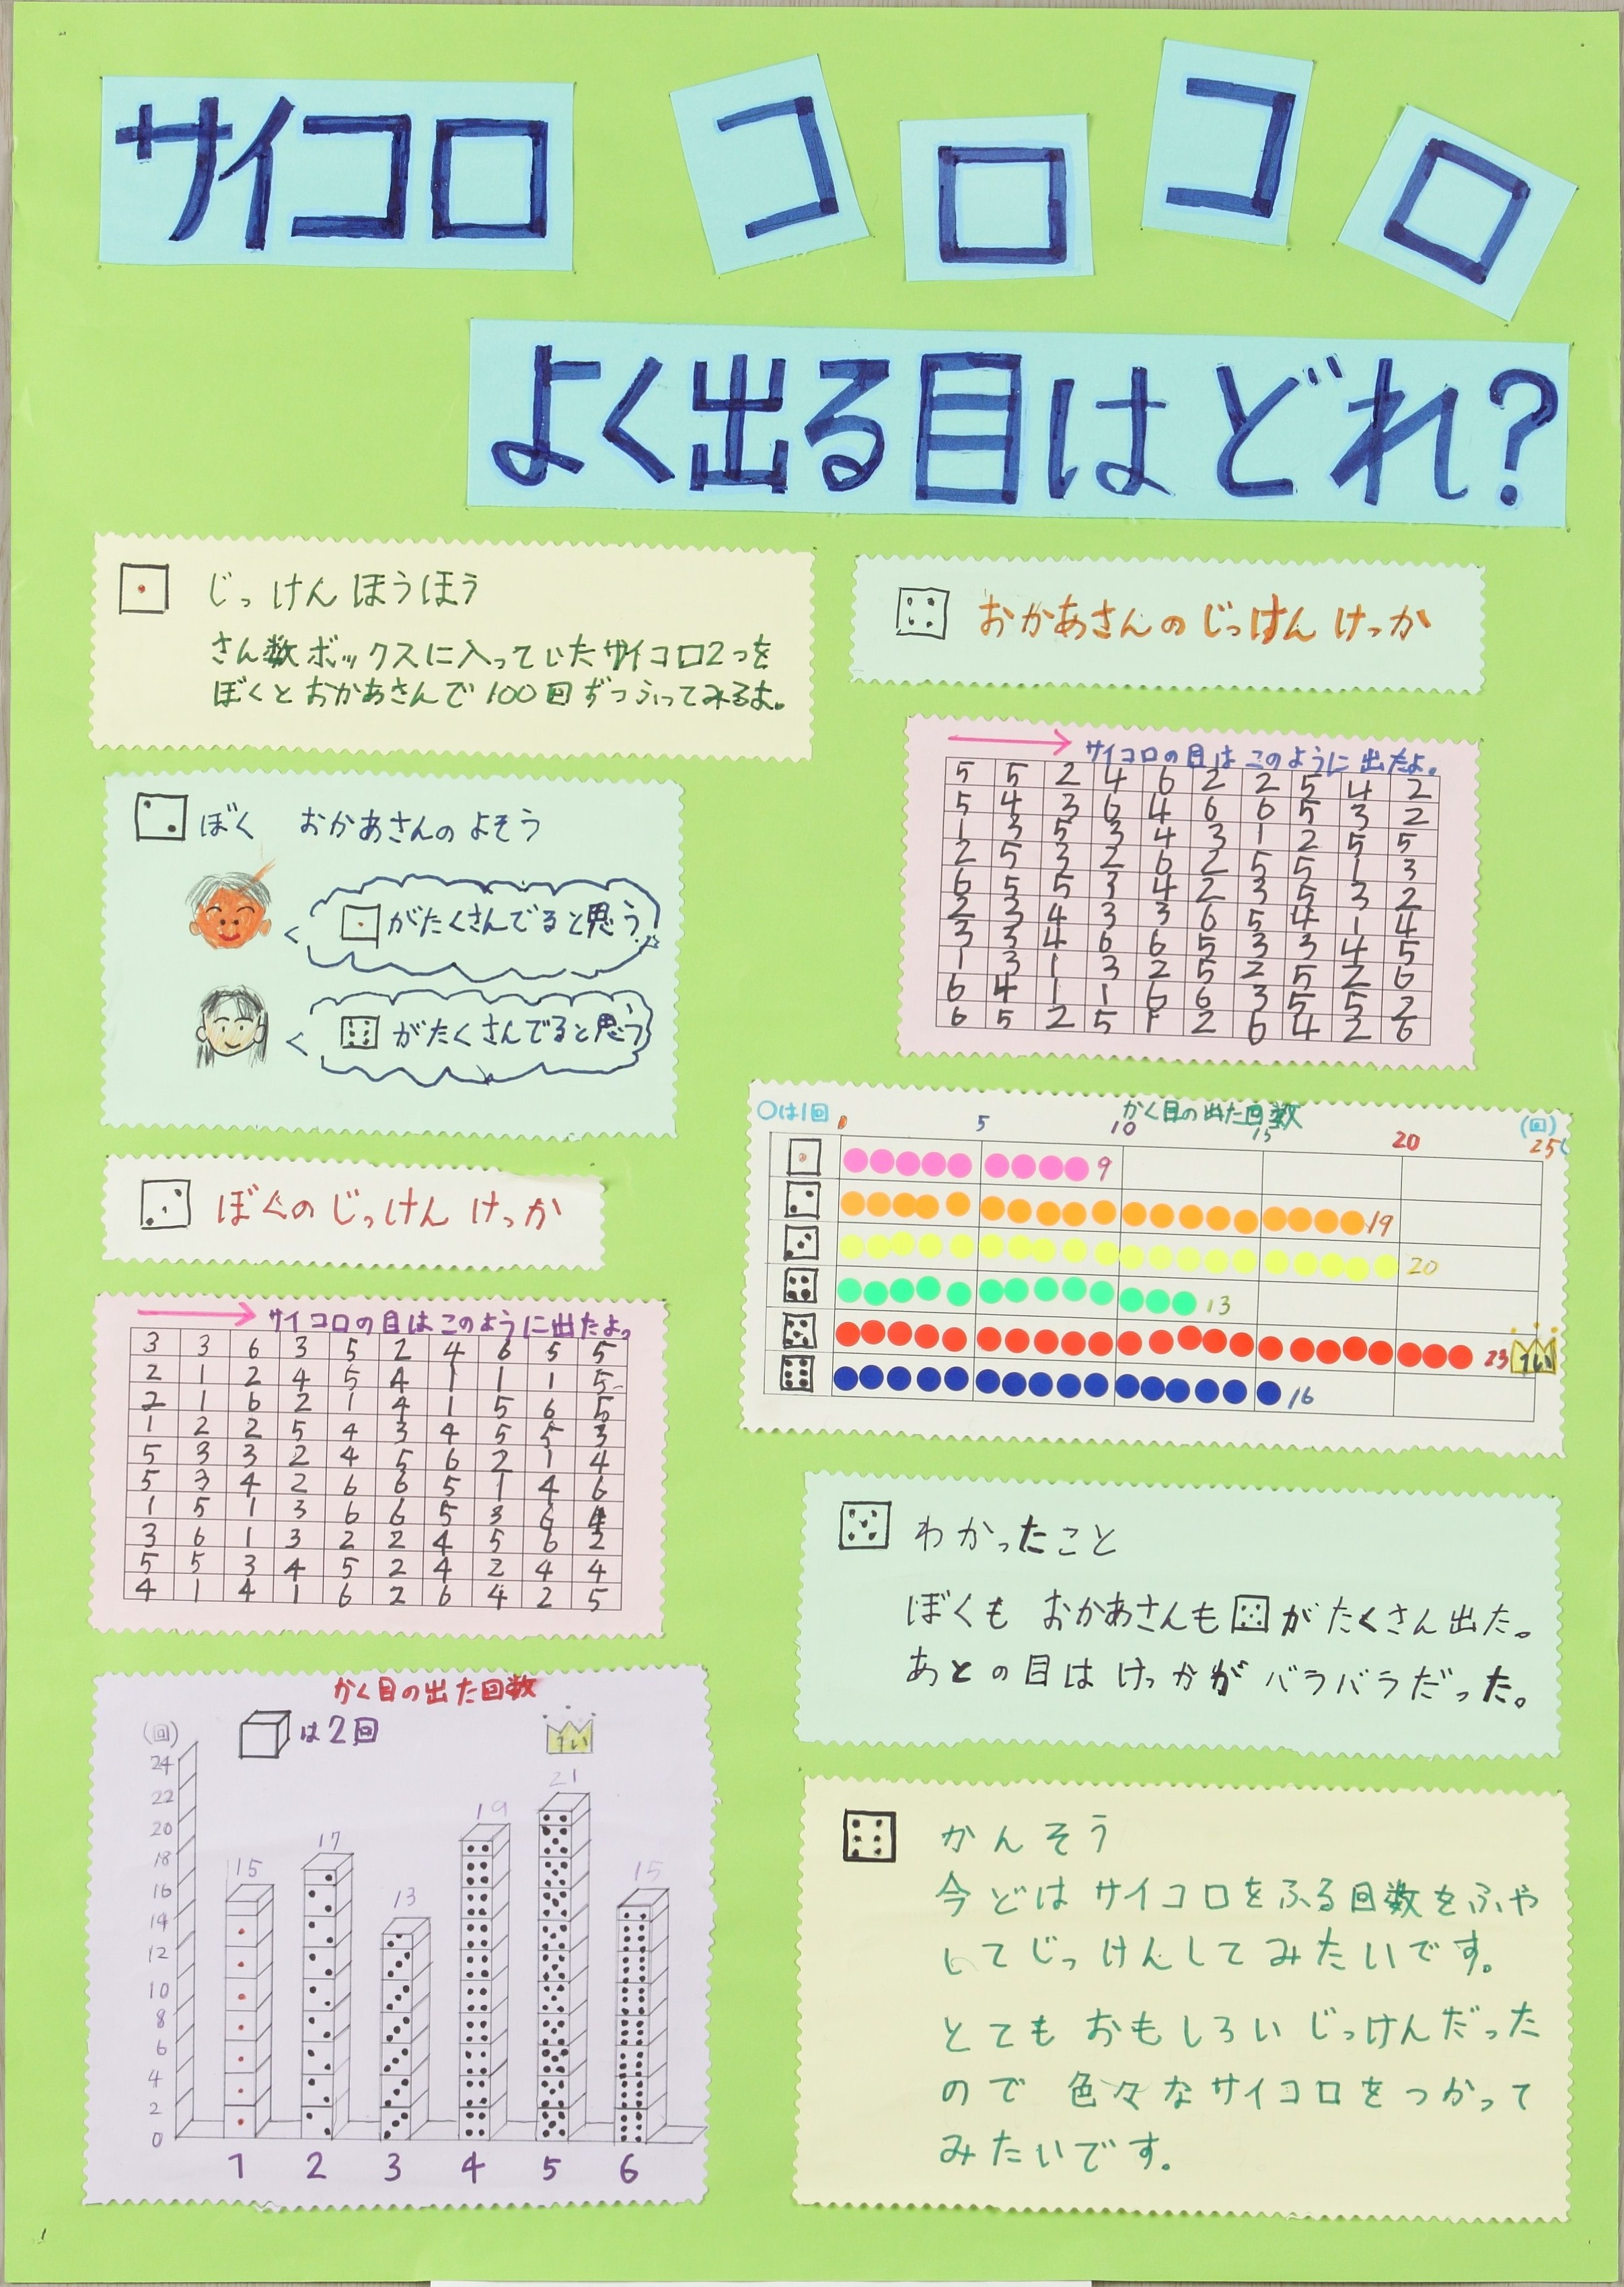 サイコロ コロコロ
よく出る目はどれ?
じっけんほうほう
さん数ボックスに入っていたサイコロ2つを
ぼくとおかあさんで100回ずつふってみるよ。
ぼく おかあさんのよそう
がたくさんでると思う
がたくさんでると思う
ぼくのじっけんけっか
サイコロの目はこのように出たよ。
3 3 6 3 5 2 4 6 5 5
2 1 2 4 5 4 1 1 1 5
2 1 6 2 1 4 1 5 6 5
1 2 2 5 4 3 4 5 5 3
5 3 3 2 4 5 6 2 1 4
5 3 4 2 6 6 5 1 4 6
1 5 1 3 6 6 5 3 6 4
3 6 1 3 2 2 4 5 6 2
5 5 3 4 5 2 4 2 4 4
4 1 4 1 6 2 6 4 2 5
かく目の出た回数
(回)
は2回
1い
24
22
20
18
16
14
12
10
8
6
4
2
0
15 17 13 19 21 15
1 2 3 4 5 6
おかあさんのじっけんけっか
サイコロの目はこのように出たよ。
5 5 2 4 6 2 2 5 4 2
5 4 3 6 4 6 6 5 3 2
1 3 5 3 4 3 1 2 5 5
2 5 3 2 6 2 5 5 1 3
6 5 5 3 4 2 3 5 3 2
2 3 4 3 3 6 5 4 1 4
3 3 4 6 6 5 3 3 4 5
1 3 1 3 2 5 2 5 2 6
6 4 1 1 6 6 3 5 5 2
6 5 2 5 1 2 6 4 2 6
○は1回
かく目の出た回数
(回)
0 5 10 15 20 25
9
19
20
13
23 1い
16
わかったこと
ぼくも おかあさんも がたくさん出た。
あとの目はけっかがバラバラだった。
かんそう
今どはサイコロをふる回数をふや
してじっけんしてみたいです。
とてもおもしろいじっけんだった
ので色々なサイコロをつかって
みたいです。